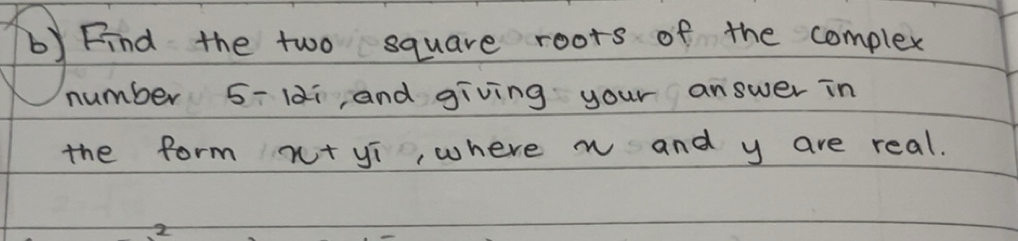 b) Find the two square roots of the complex
number 5-12i, and giving your answer in
the form x+yi, where x and y are real.
2